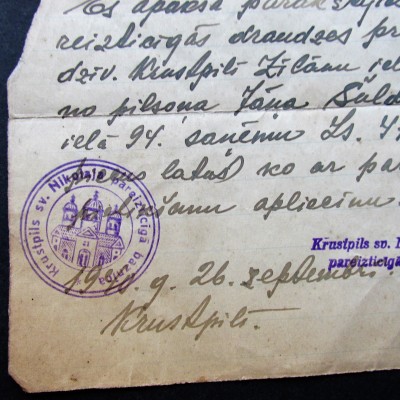 Es apakšā parakstījies
reizticīgās draudzes pr
dzīv. Krustpilī Zīlānu iel
no pilsoņa Jāņa Suld
ielā 94. saņēmu Ls. 4
latus ko ar par
parakstu apliecinu.
Krustpils sv. Nikolaja pareizticīgā baznīca
Krustpils sv. N
pareizticīgā
19 g. 26. septembrī
Krustpilī.